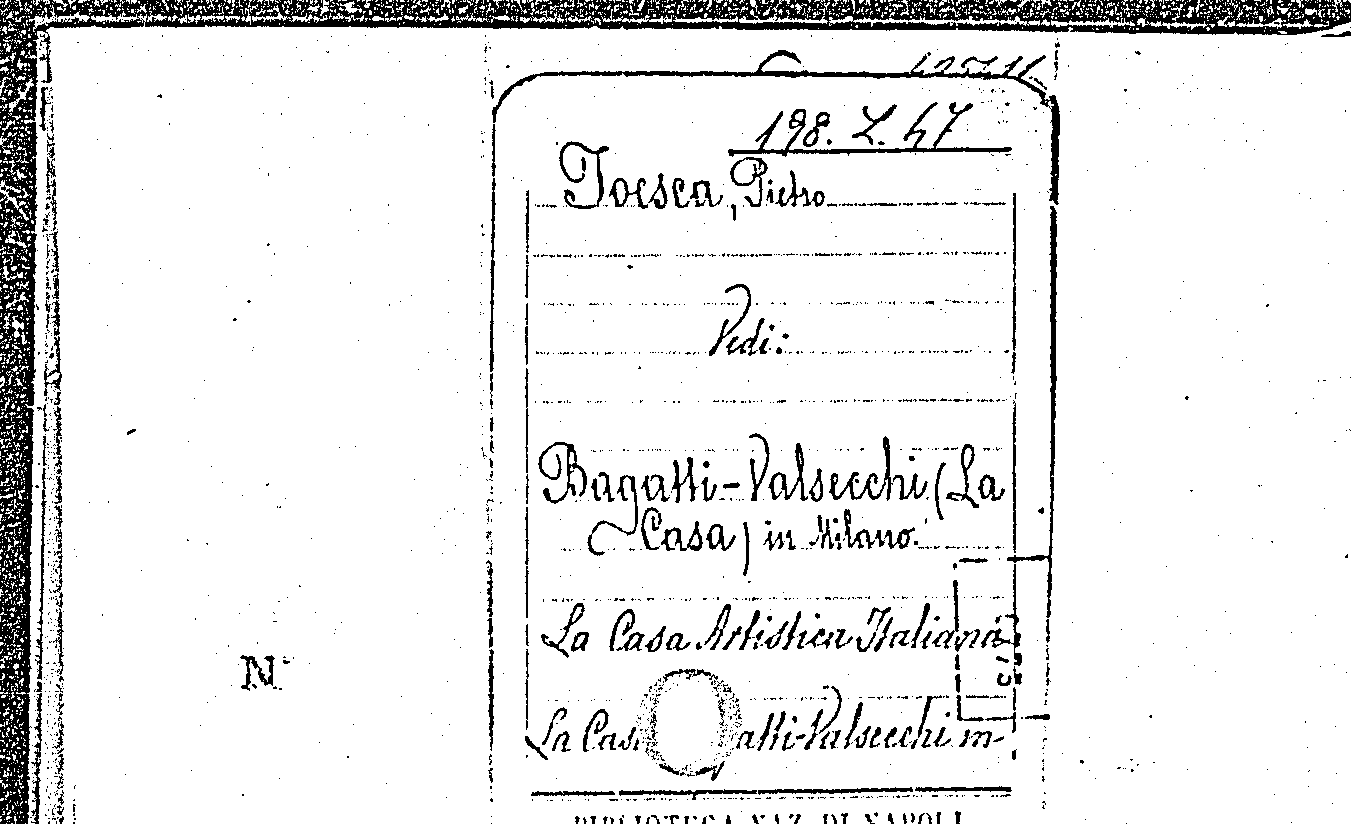 198. Z. 47
Toesca, Pietro
Vedi:
Bagatti-Valsecchi (La
Casa) in Milano.
La Casa Artistica Italiana
La Cas atti-Valsecchi in
N.
BIBLIOTECA NAZ. DI NAPOLI